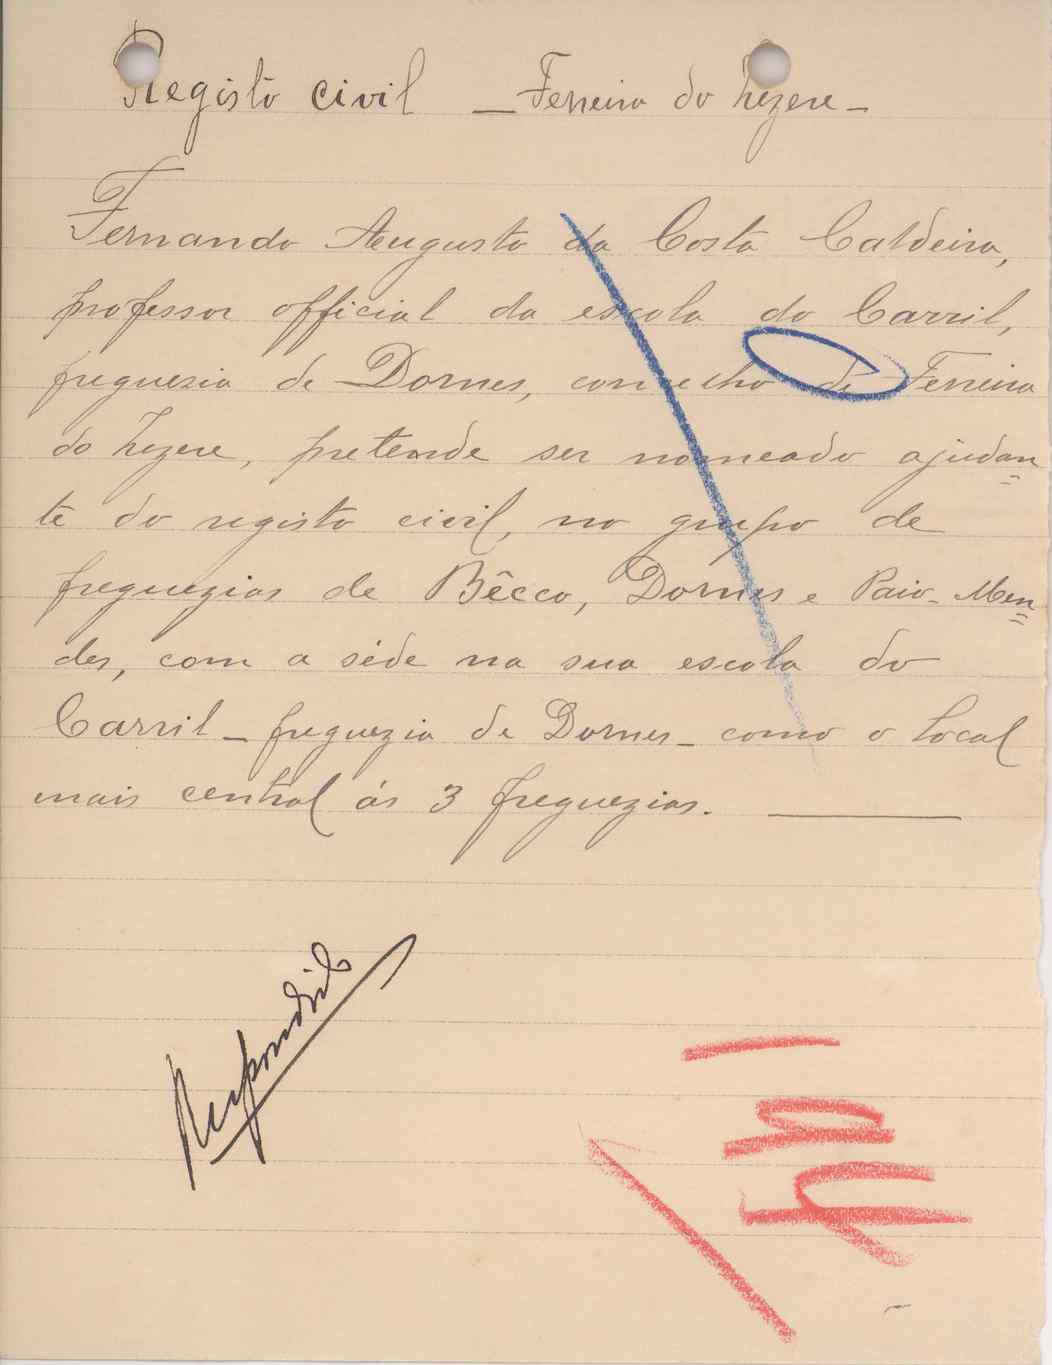 Registo civil — Ferreira do Zezere —
Fernando Augusto da Costa Caldeira,
professor official da escola do Carril,
freguezia de Dornes, concelho de Ferreira
do Zezere, pretende ser nomeado ajudan=
te do registo civil, no grupo de
freguezias de Bêcco, Dornes e Paio-Men=
des, com a séde na sua escola do
Carril — freguezia de Dornes — como o local
mais central ás 3 freguezias.
Respondido